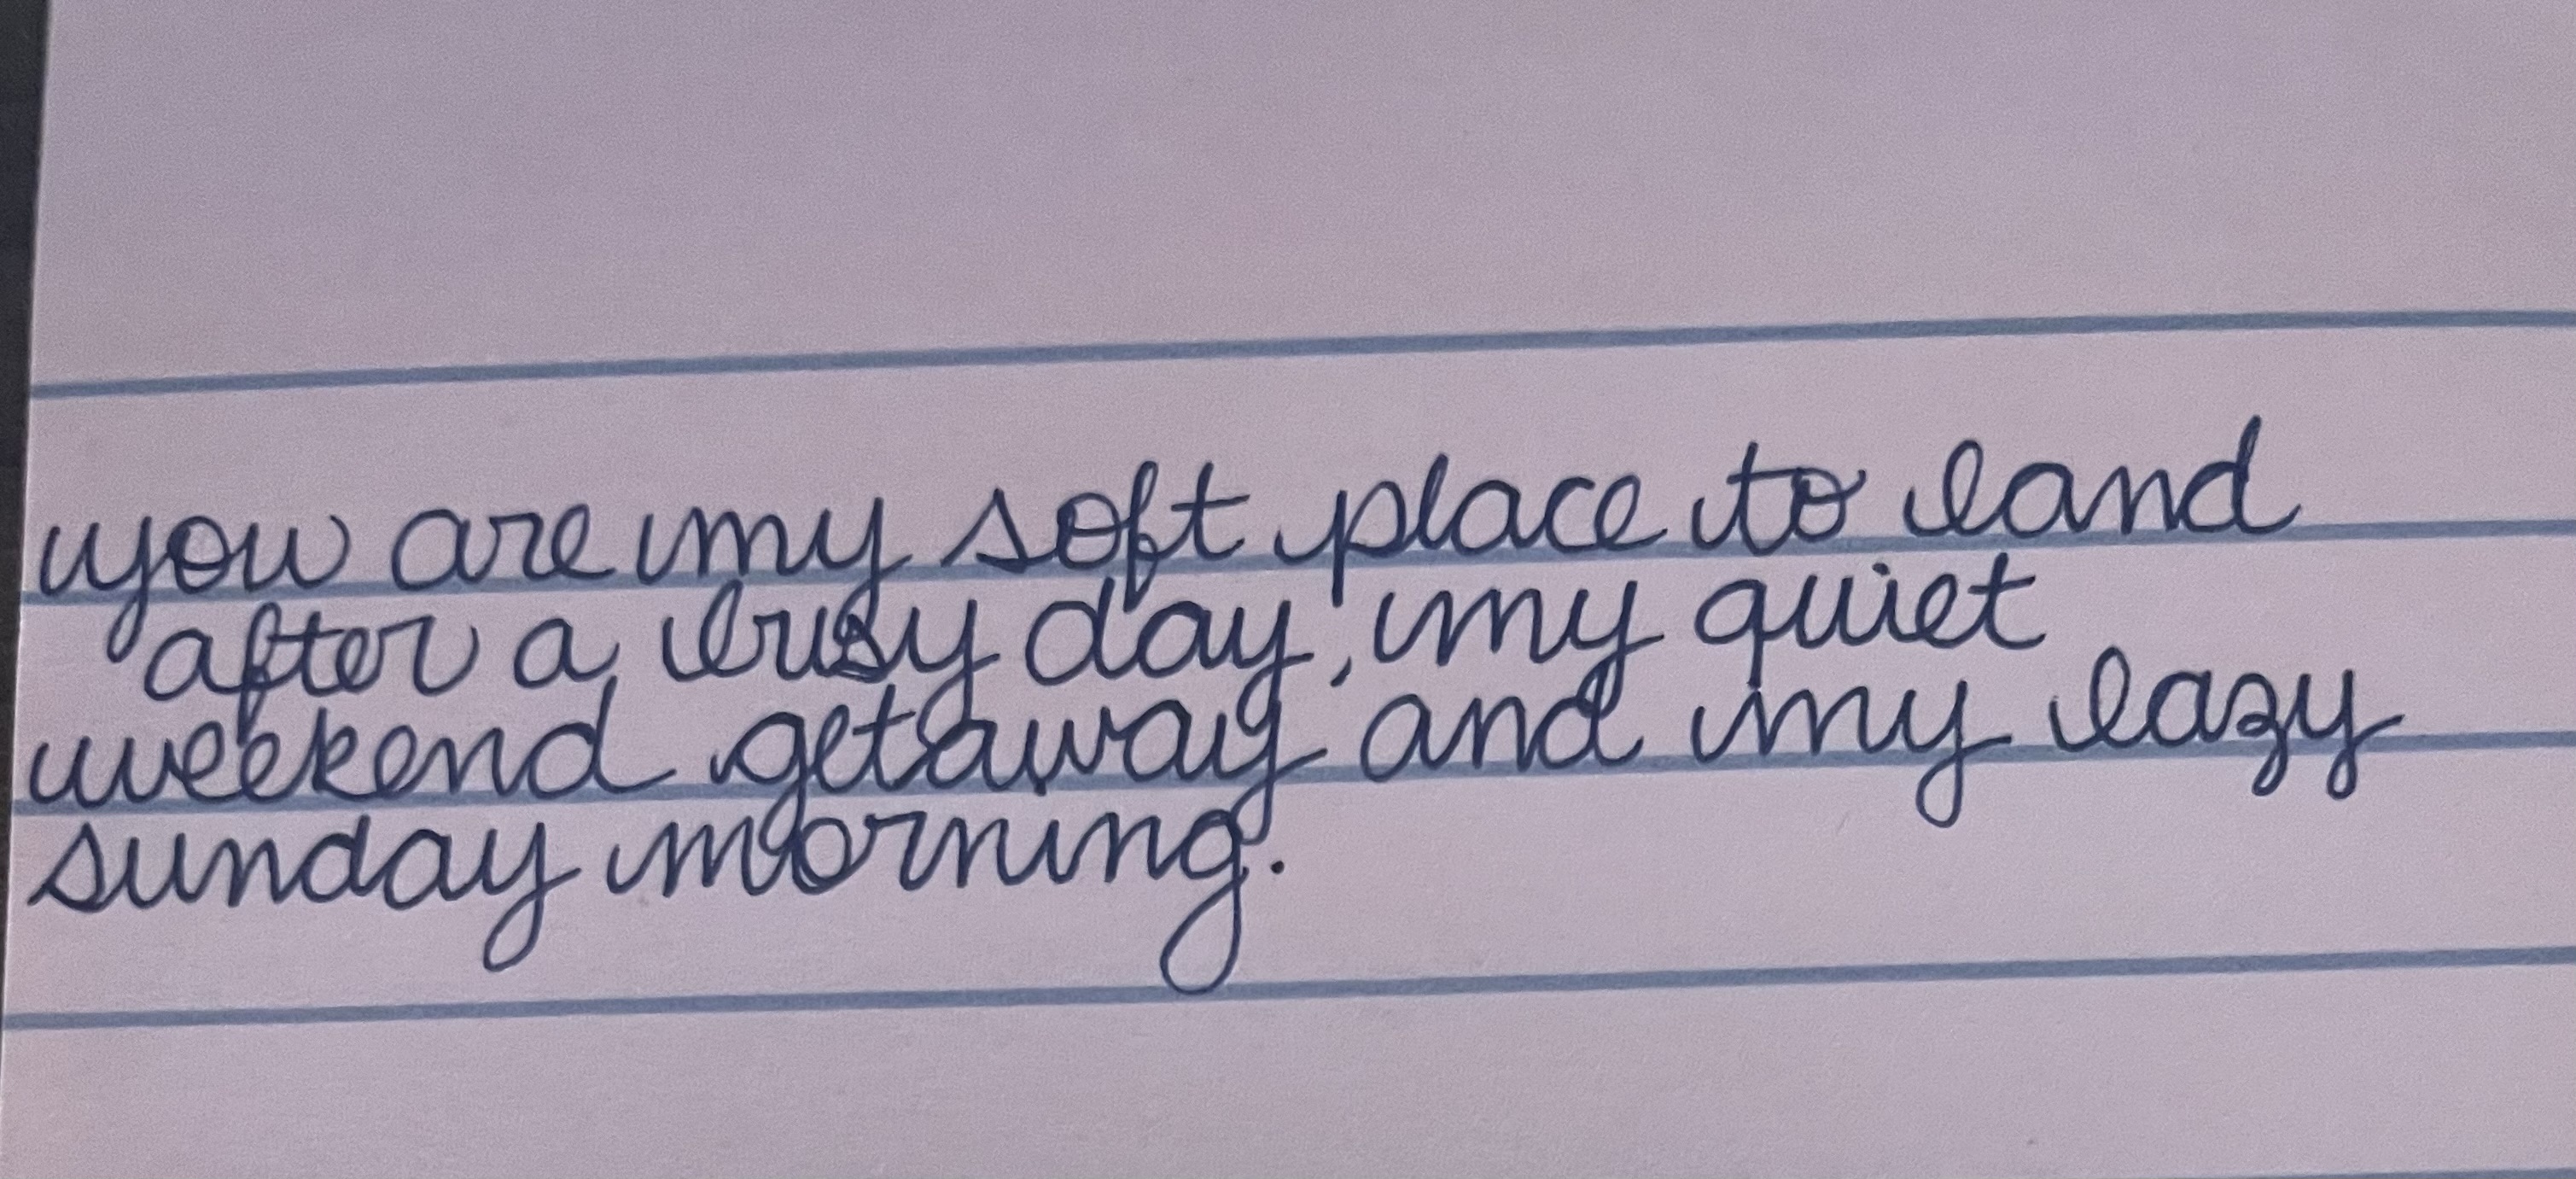 you are my soft place to land
after a busy day, my quiet
weekend getaway and my lazy
sunday morning.